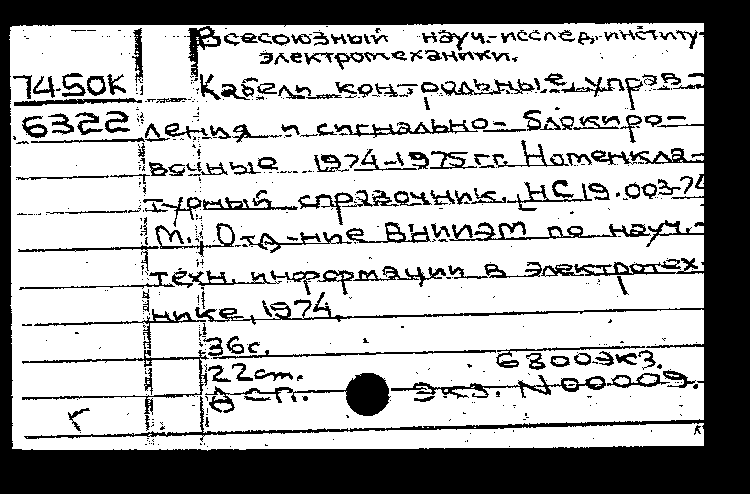 Всесоюзный науч.-исслед. институ-
электромеханики.
74-50К Кабели контрольные, управ-
6322 ления и сигнально-блокиро-
вочные 1974-1975 гг. Номенкла-
турный справочник. НС 19.003-74
М., Отд-ние ВНИИЭМ по науч.-
техн. информации в электротех-
нике, 1974.
36с.
22см. 6300экз.
ДСП. Экз. N 00009.
г